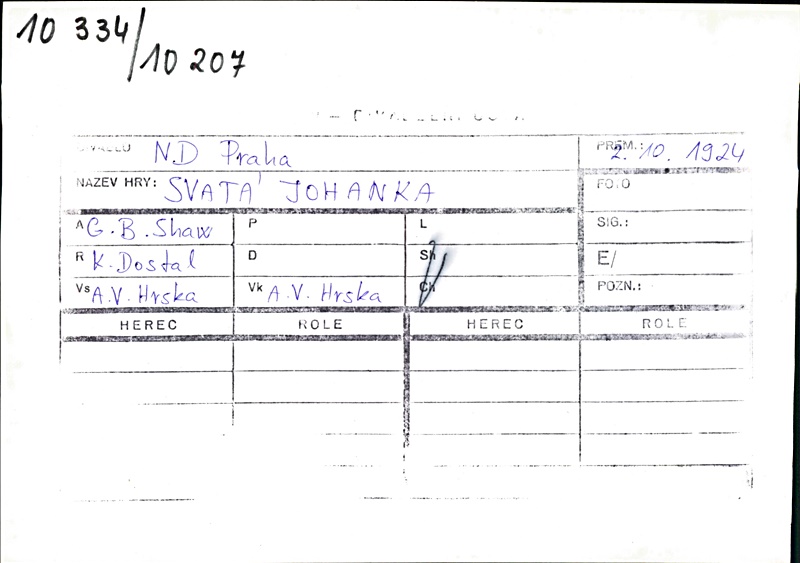 10 334/
10 207
N.D Praha
PREM.: 2. 10. 1924
NAZEV HRY: SVATÁ JOHANKA
FOTO
A G. B. Shaw
P
L
SIG.:
R K. Dostal
D
Sh
E/
Vs A.V. Hrska
Vk A.V. Hrska
Ch
POZN.:
HEREC ROLE HEREC ROLE